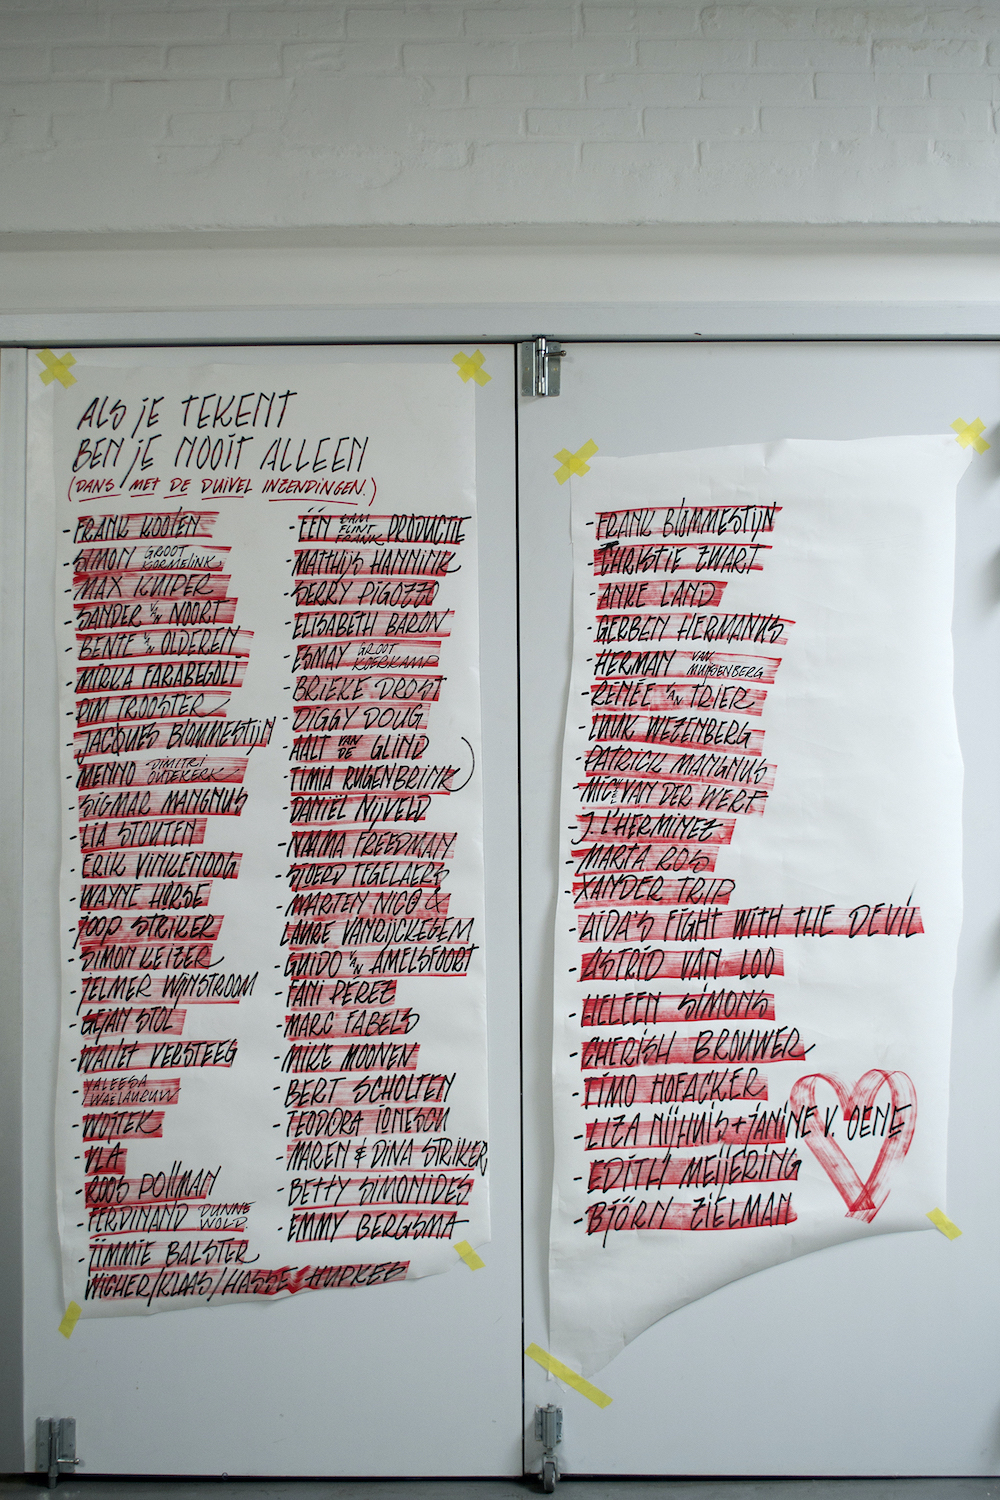 ALS JE TEKENT
BEN JE NOOIT ALLEEN
(DANS MET DE DUIVEL INZENDINGEN.)
- FRANK KOOIEN
- SIMON GROOT KORMELINK
- MAX KUIPER
- SANDER V/N NOORT
- BENTE V/N OLDEREN
- MIRKA FARABEGOLI
- PIM TROOSTER
- JACQUES BLOMMESTIJN
- MENNO DIMITRI OUDEKERK
- SIGMAR MANGNUS
- LIA STOUTEN
- ERIK VINKENOOG
- WAYNE HORSE
- JOOP STRIKER
- SIMON KEIZER
- JELMER WIJNSTROOM
- GEJAN STOL
- WALLEF VERSTEEG
- WOJTEK
- VLA
- ROOS POLLMAN
- FERDINAND DUNNE WOLD.
- JIMMIE BALSTER
WIGHER/KLAAS/HASSE HUPKES
- ÉÉN FLINT FRANK PRODUCTIE
- MATTHIJS HANNINK
- SERRY PIGOZZO
- ELISABETH BARON
- ESMAY GROOT KOERKAMP
- BRIEKE DROST
- DIGGY DOUG
- AALT VAN DE GLIND
- TIMIA RUGENBRINK
- DANIEL NIJVELD
- NAIMA FREEDMAN
- SJOERD TEGELAERS
- MARTEN NICO &
LAURE VANRIJCKEGEM
- GUIDO V/N AMELSFOORT
- FANI PEREZ
- MARC FABELS
- MIKE MOONEN
- BERT SCHOLTEN
- TEODORA IONESCU
- MAREN & DINA STRIKER
- BETTY SIMONIDES
- EMMY BERGSMA
- FRANK BLOMMESTIJN
- CHRISTIE ZWART
- ANKE LAND
- GERBEN HERMANUS
- HERMAN VAN MUIJDENBERG
- RENÉE V/N TRIER
- LUUK WEZENBERG
- PATRICK MANGNUS
- MICK VAN DER WERF
- J. L'HERMINEZ
- MARTA ROS
- XANDER TRIP
- AIDA'S FIGHT WITH THE DEVIL
- ASTRID VAN LOO
- HELEEN SIMONS
- CHERISH BROUWER
- TIMO HOFACKER
- LIZA NIJHUIS + JANINE V. OENE
- EDITH MEIJERING
- BJÖRN ZIELMAN